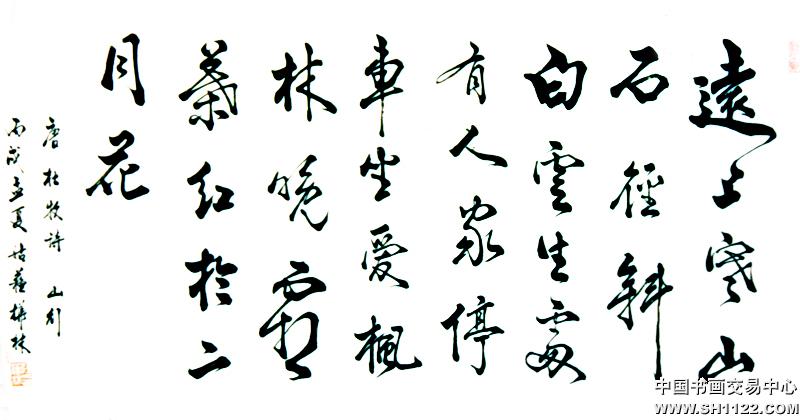 遠上寒山
石徑斜
白雲生處
有人家停
車坐愛楓
林晚霜
葉紅於二
月花
唐杜牧詩 山行
丙戌孟夏姑蘇樺林
中国书画交易中心
WWW.SH1122.COM